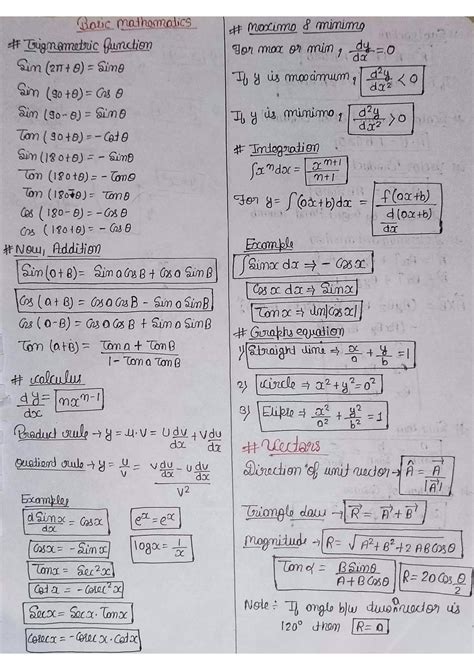 Basic mathematics
# Trignometric function
Sin (2π+θ) = Sinθ
Sin (90+θ) = Cos θ
Sin (90-θ) = Sinθ
Tan (90+θ) = - Cotθ
Sin (180+θ) = - Sinθ
Tan (180+θ) = - Tanθ
Tan (180+θ) = Tanθ
Cos (180-θ) = - Cosθ
Cos (180+θ) = - Cosθ
# Now, Addition
Sin(a+B) = Sin a Cos B + Cos a Sin B
Cos (a+B) = Cos a Cos B - Sin a Sin B
Cos (a-B) = Cos a Cos B + Sin a Sin B
Tan (a+B) = Tan a + Tan B / 1 - Tan a Tan B
# Calculus
dy/dx = nx^n-1
Product rule → y = u.v = u dv/dx + v du/dx
Quotient rule → y = u/v = v du/dx - u dv/dx / v²
Examples
d Sinx/dx = Cosx
e^x = e^x
Cosx = - Sinx
logx = 1/x
Tanx = Sec²x
Cotx = - Cosec²x
Secx = Secx. Tanx
Cosecx = - Cosecx. Cotx
# Maxima & minima
For max or min, dy/dx = 0
If y is maximum, d²y/dx² < 0
If y is minima, d²y/dx² > 0
# Integration
∫x^n dx = x^n+1 / n+1
For y = ∫(ax+b)dx = f(ax+b) / d(ax+b)/dx
Example
∫Sinx dx ⇒ - Cosx
Cosx dx ⇒ Sinx
Tanx ⇒ ln|Cosx|
# Graphs equation
1) Straight line ⇒ x/a + y/b = 1
2) Circle ⇒ x²+y² = a²
3) Elipse ⇒ x²/a² + y²/b² = 1
# Vectors
Direction of unit vector → Â = A⃗ / |A⃗|
Triangle law → R⃗ = A⃗ + B⃗
Magnitude → R = √A²+B²+2ABCosθ
Tanα = BSinθ / A+BCosθ
R = 2aCosθ/2
Note :- If angle b/w two vector is
120° then R = a